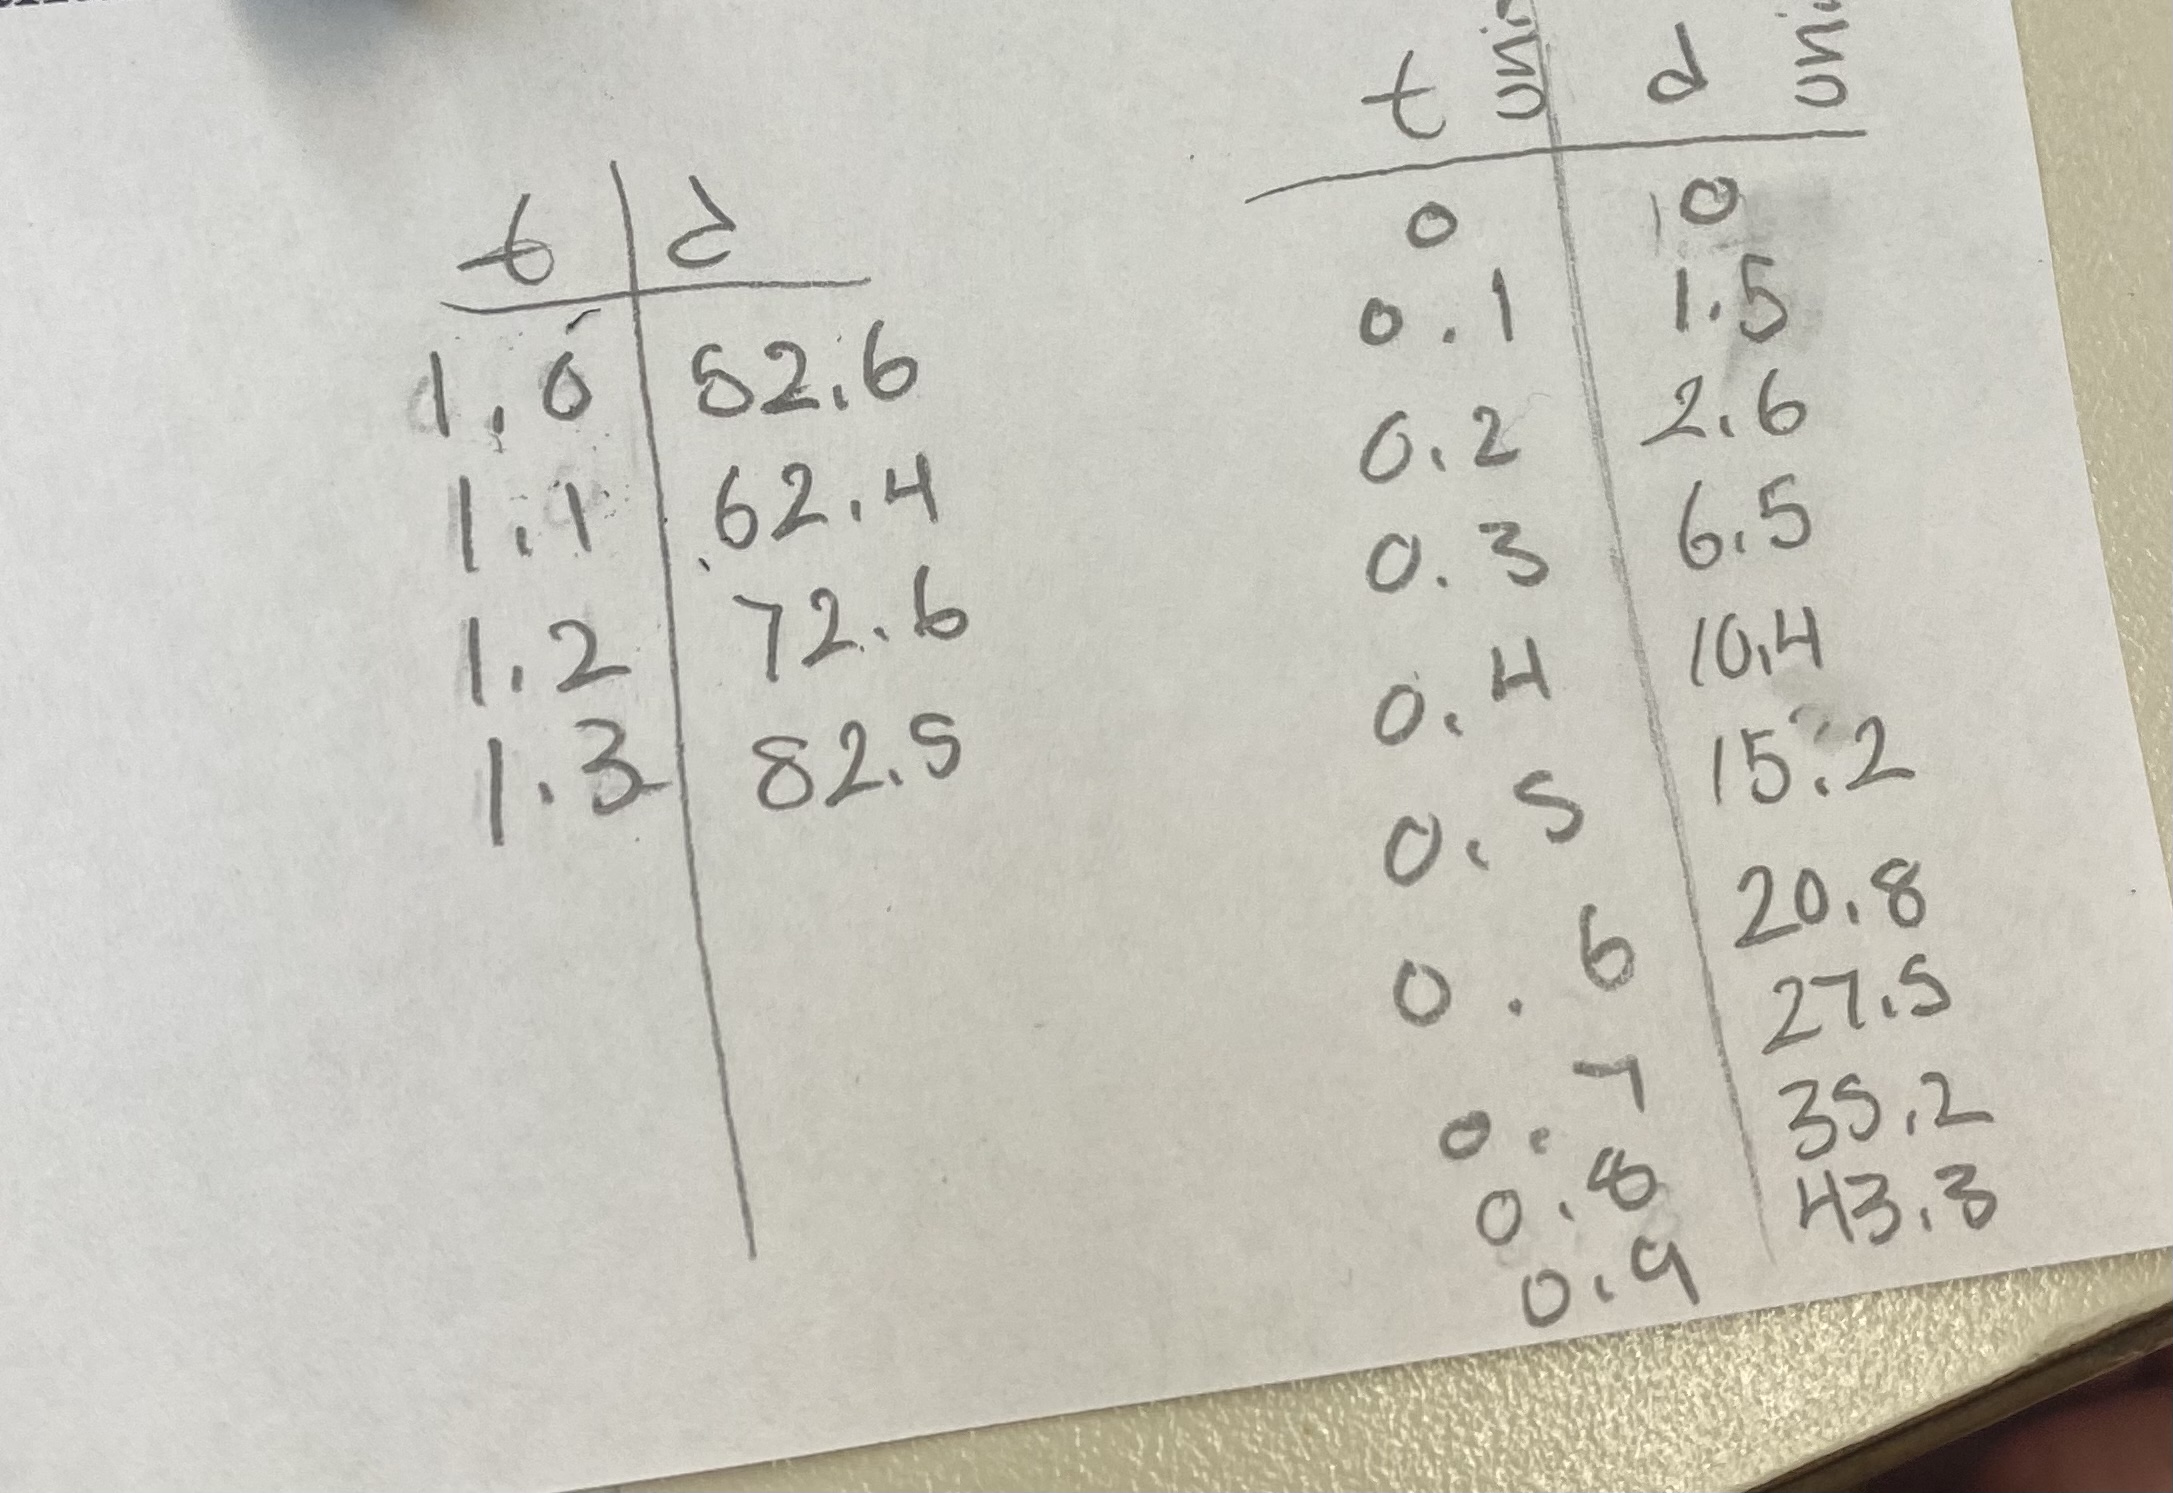 t d
1.0 52.6
1.1 62.4
1.2 72.6
1.3 82.5
t d
0 0
0.1 1.5
0.2 2.6
0.3 6.5
0.4 10.4
0.5 15.2
0.6 20.8
0.7 27.5
0.8 35.2
0.9 43.3